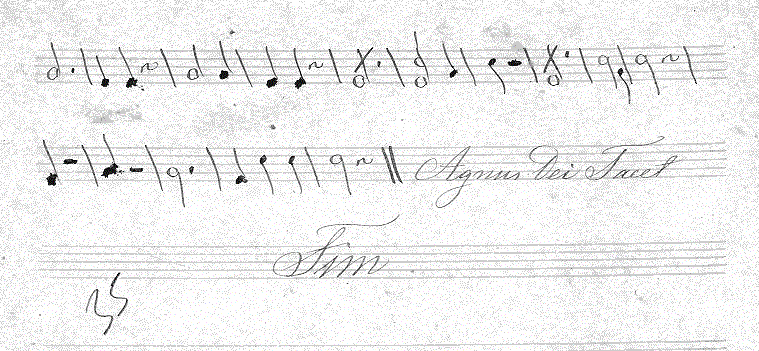 Agnus Dei Tacet
Fim